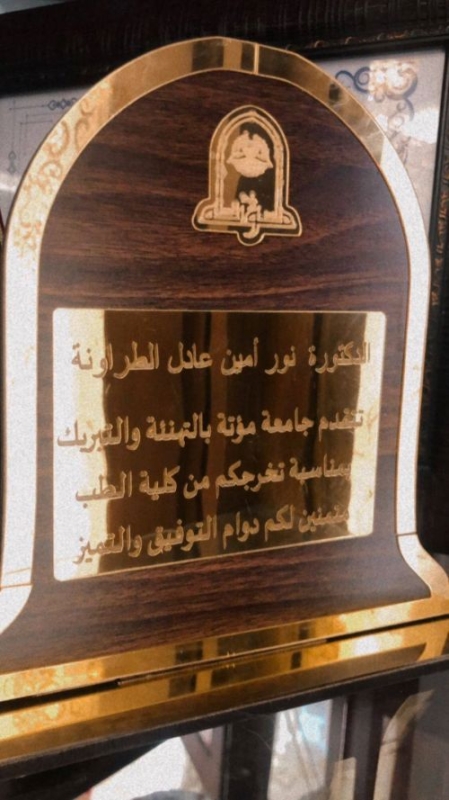 الدكتورة نور أمين عادل الطراونة
تتقدم جامعة مؤتة بالتهنئة والتبريك
بمناسبة تخرجكم من كلية الطب
متمنين لكم دوام التوفيق والتميز